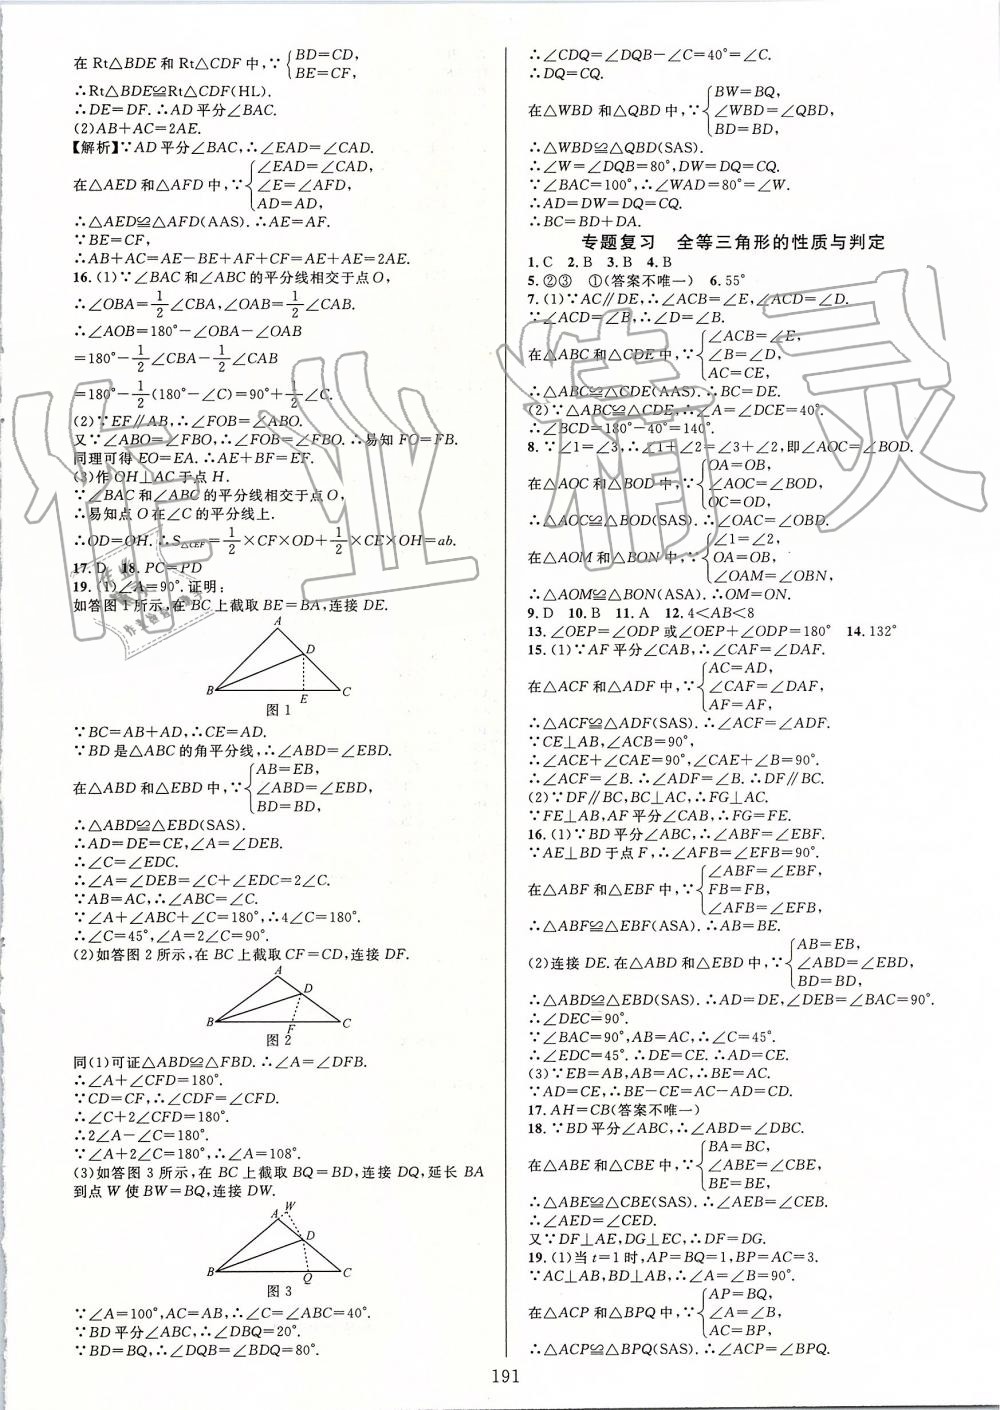 在 Rt△BDE 和 Rt△CDF 中,∵{BD=CD,
BE=CF,
∴Rt△BDE≌Rt△CDF(HL).
∴DE=DF.∴AD 平分∠BAC.
(2)AB+AC=2AE.
【解析】∵AD 平分∠BAC,∴∠EAD=∠CAD.
在△AED 和△AFD 中,∵{∠EAD=∠CAD,
∠E=∠AFD,
AD=AD,
∴△AED≌△AFD(AAS).∴AE=AF.
∵BE=CF,
∴AB+AC=AE-BE+AF+CF=AE+AE=2AE.
16.(1)∵∠BAC 和∠ABC 的平分线相交于点 O,
∴∠OBA=1/2∠CBA,∠OAB=1/2∠CAB.
∴∠AOB=180°-∠OBA-∠OAB
=180°-1/2∠CBA-1/2∠CAB
=180°-1/2(180°-∠C)=90°+1/2∠C.
(2)∵EF∥AB,∴∠FOB=∠ABO.
又∵∠ABO=∠FBO,∴∠FOB=∠FBO.∴易知 FO=FB.
同理可得 EO=EA.∴AE+BF=EF.
(3)作 OH⊥AC 于点 H.
∵∠BAC 和∠ABC 的平分线相交于点 O,
∴易知点 O 在∠C 的平分线上.
∴OD=OH.∴S△CEF=1/2×CF×OD+1/2×CE×OH=ab.
17.D 18.PC=PD
19.(1)∠A=90°.证明:
如答图 1 所示,在 BC 上截取 BE=BA,连接 DE.
A
D
B E C
图 1
∵BC=AB+AD,∴CE=AD.
∵BD 是△ABC 的角平分线,∴∠ABD=∠EBD.
在△ABD 和△EBD 中,∵{AB=EB,
∠ABD=∠EBD,
BD=BD,
∴△ABD≌△EBD(SAS).
∴AD=DE=CE,∠A=∠DEB.
∴∠C=∠EDC.
∴∠A=∠DEB=∠C+∠EDC=2∠C.
∵AB=AC,∴∠ABC=∠C.
∵∠A+∠ABC+∠C=180°,∴4∠C=180°.
∴∠C=45°,∠A=2∠C=90°.
(2)如答图 2 所示,在 BC 上截取 CF=CD,连接 DF.
A
D
B F C
图 2
同(1)可证△ABD≌△FBD.∴∠A=∠DFB.
∴∠A+∠CFD=180°.
∵CD=CF,∴∠CDF=∠CFD.
∴∠C+2∠CFD=180°.
∴2∠A-∠C=180°.
∵∠A+2∠C=180°,∴∠A=108°.
(3)如答图 3 所示,在 BC 上截取 BQ=BD,连接 DQ,延长 BA
到点 W 使 BW=BQ,连接 DW.
A W
D
B Q C
图 3
∵∠A=100°,AC=AB,∴∠C=∠ABC=40°.
∵BD 平分∠ABC,∴∠DBQ=20°.
∵BD=BQ,∴∠DQB=∠BDQ=80°.
∴∠CDQ=∠DQB-∠C=40°=∠C.
∴DQ=CQ.
在△WBD 和△QBD 中,∵{BW=BQ,
∠WBD=∠QBD,
BD=BD,
∴△WBD≌△QBD(SAS).
∴∠W=∠DQB=80°,DW=DQ=CQ.
∵∠BAC=100°,∴∠WAD=80°=∠W.
∴AD=DW=DQ=CQ.
∴BC=BD+DA.
专题复习 全等三角形的性质与判定
1.C 2.B 3.B 4.B
5.②③ ①(答案不唯一) 6.55°
7.(1)∵AC∥DE,∴∠ACB=∠E,∠ACD=∠D.
∵∠ACD=∠B,∴∠D=∠B.
在△ABC 和△CDE 中,∵{∠ACB=∠E,
∠B=∠D,
AC=CE,
∴△ABC≌△CDE(AAS).∴BC=DE.
(2)∵△ABC≌△CDE,∴∠A=∠DCE=40°.
∴∠BCD=180°-40°=140°.
8.∵∠1=∠3,∴∠1+∠2=∠3+∠2,即∠AOC=∠BOD.
在△AOC 和△BOD 中,∵{OA=OB,
∠AOC=∠BOD,
OC=OD,
∴△AOC≌△BOD(SAS).∴∠OAC=∠OBD.
在△AOM 和△BON 中,∵{∠1=∠2,
OA=OB,
∠OAM=∠OBN,
∴△AOM≌△BON(ASA).∴OM=ON.
9.D 10.B 11.A 12.4<AB<8
13.∠OEP=∠ODP 或∠OEP+∠ODP=180° 14.132°
15.(1)∵AF平分∠CAB,∴∠CAF=∠DAF.
在△ACF 和△ADF 中,∵{AC=AD,
∠CAF=∠DAF,
AF=AF,
∴△ACF≌△ADF(SAS).∴∠ACF=∠ADF.
∵CE⊥AB,∠ACB=90°,
∴∠ACE+∠CAE=90°,∠CAE+∠B=90°.
∴∠ACF=∠B.∴∠ADF=∠B.∴DF∥BC.
(2)∵DF∥BC,BC⊥AC,∴FG⊥AC.
∵FE⊥AB,AF平分∠CAB,∴FG=FE.
16.(1)∵BD 平分∠ABC,∴∠ABF=∠EBF.
∵AE⊥BD 于点 F,∴∠AFB=∠EFB=90°.
在△ABF 和△EBF 中,∵{∠ABF=∠EBF,
FB=FB,
∠AFB=∠EFB,
∴△ABF≌△EBF(ASA).∴AB=BE.
(2)连接 DE.在△ABD 和△EBD 中,∵{AB=EB,
∠ABD=∠EBD,
BD=BD,
∴△ABD≌△EBD(SAS).∴AD=DE,∠DEB=∠BAC=90°.
∴∠DEC=90°.
∵∠BAC=90°,AB=AC,∴∠C=45°.
∴∠EDC=45°.∴DE=CE.∴AD=CE.
(3)∵EB=AB,AB=AC,∴BE=AC.
∵AD=CE,∴BE-CE=AC-AD=CD.
17.AH=CB(答案不唯一)
18.∵BD 平分∠ABC,∴∠ABD=∠DBC.
在△ABE 和△CBE 中,∵{BA=BC,
∠ABE=∠CBE,
BE=BE,
∴△ABE≌△CBE(SAS).∴∠AEB=∠CEB.
∴∠AED=∠CED.
又∵DF⊥AE,DG⊥EC,∴DF=DG.
19.(1)当 t=1 时,AP=BQ=1,BP=AC=3.
∵AC⊥AB,BD⊥AB,∴∠A=∠B=90°.
在△ACP 和△BPQ 中,∵{AP=BQ,
∠A=∠B,
AC=BP,
∴△ACP≌△BPQ(SAS).∴∠ACP=∠BPQ.
191
作业精灵